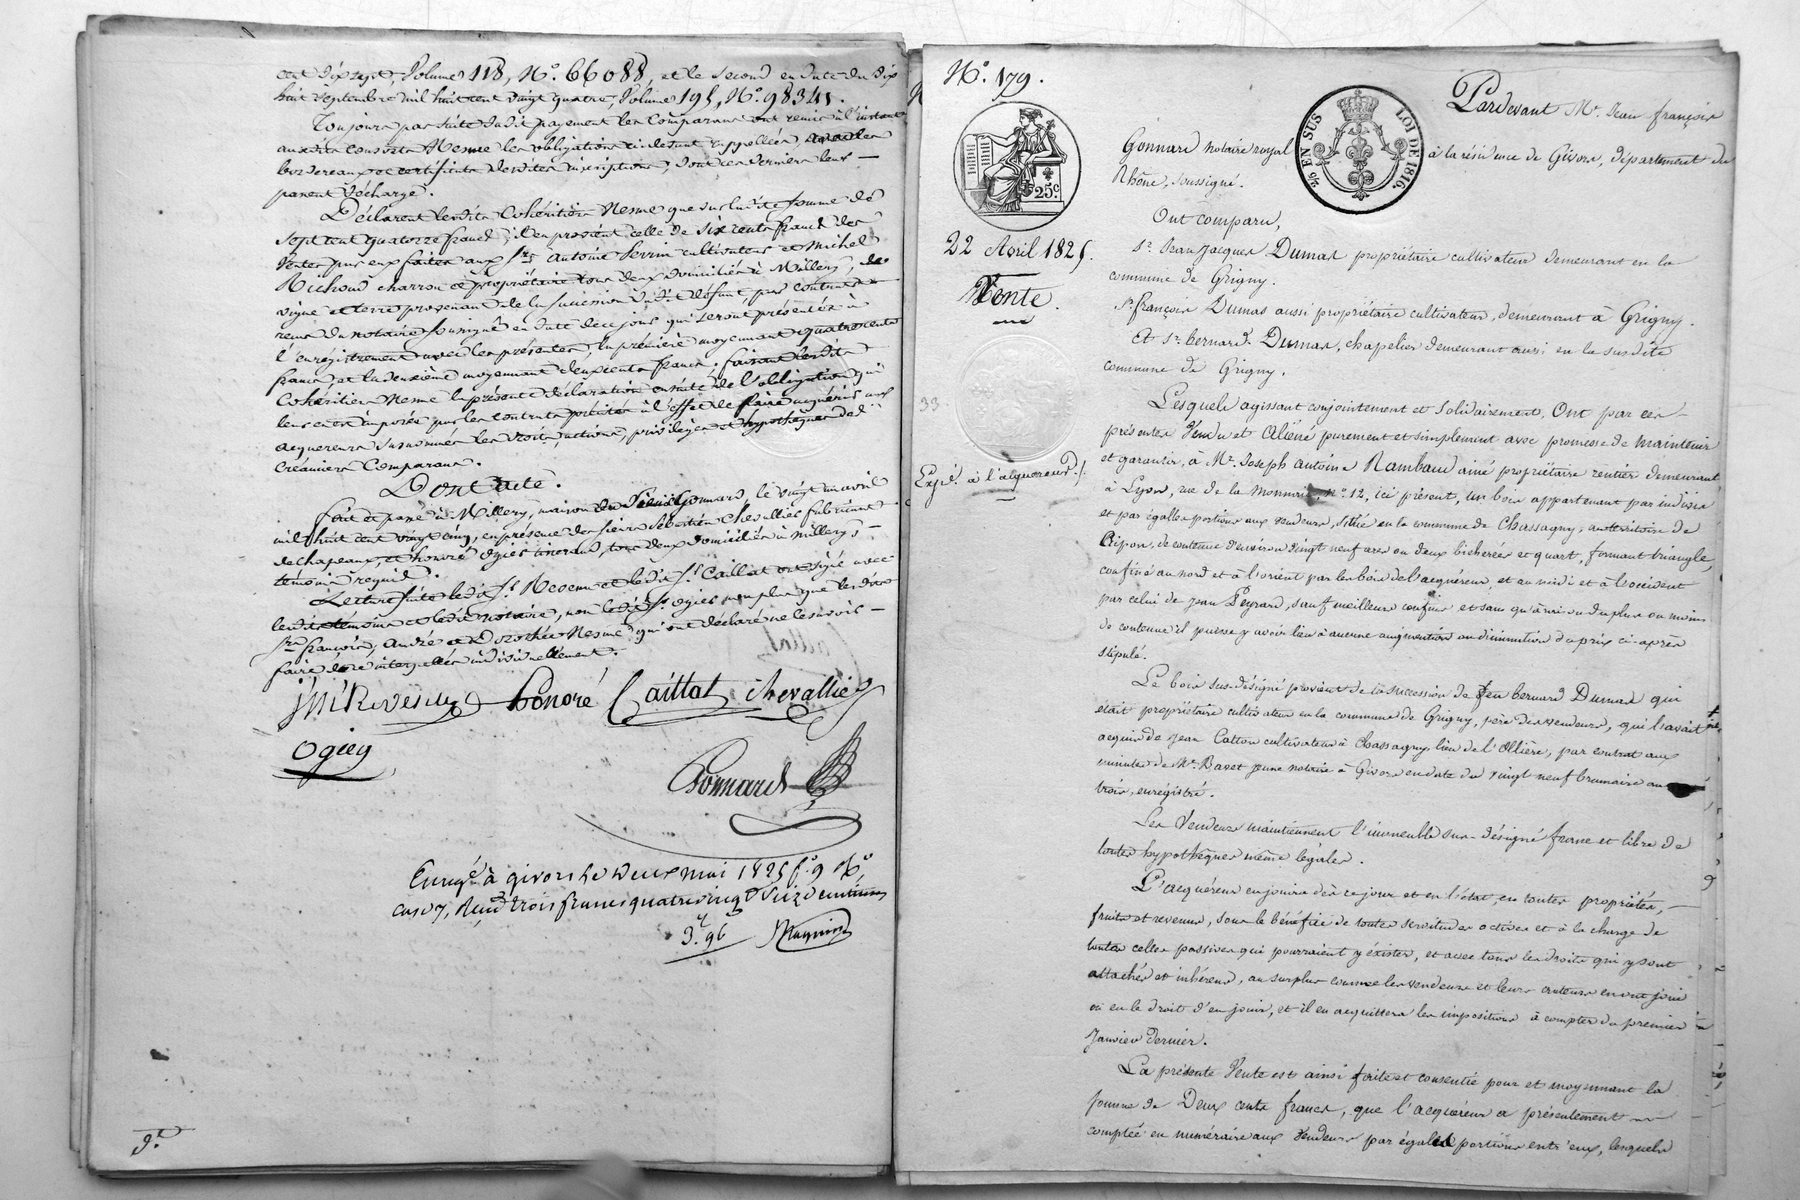 cent dix sept, Volume 118, N.° 66088, et le second en date du dix
huit septembre mil huit cent vingt quatre, Volume 195, N.° 98341.
Toujours par suite dudit payement les Comparans ont remis à l'instant
auxdits consorts Nesme les obligations ci devant rappellées,
bordereaux et certificats desdites inscriptions, dont ces derniers leur
passent décharge.
Déclarent lesdits Cohéritiers Nesme que sur ladite somme de
sept cent quatorze francs, il en provient celle de six cents francs des
Ventes par eux faites aux Srs Antoine cultivateur et Michel
Richoud charron et propriétaire tous deux domiciliés à Millery, de
vigne et terre provenant de la succession dudit défunt, par contrats
reçus du notaire soussigné en date de ce jour qui seront présentés à
l'enregistrement avec les présentes, la première moyennant quatre cents
francs, et la deuxième moyennant deux cents francs; faisant lesdits
Cohéritiers Nesme la présente déclaration ensuite de l'obligation qui
leur en est imposée par les contrats précités à l'effet de faire acquérir aux
acquéreurs susnommés les droits, actions, privilèges et hypothèques des
créanciers Comparans.
Dont acte.
fait et passé à Millery, maison du Gonnard, le vingt un avril
mil huit cent vingt cinq, en présence des sieurs Sébastien Chevallier fabricant
de chapeaux, et honoré Ogier tisserand, tous deux domiciliés à Millery,
témoins requis.
Lecture faite ledit Sr. et ledit Sr. Caillat ont signé avec
lesdits témoins et ledit notaire, non ledit Sr. Ogier non plus que lesdits
Srs françois, André et Dorothée Nesme qui ont déclaré ne le savoir
faire de ce interpellés individuellement.
honoré Caillat Chevallier
Ogier
Gonnard
Enregé à givors le deux mai 1825 f.° 9 R.°
case 7, Reçu trois francs quatre vingt seize centimes
3. 96
N.° 179.
Pardevant Me. Jean françois
Gonnard notaire royal à la résidence de Givors, département du
Rhône, soussigné.
EN SUS
LOI DE 1816.
25c.
Ont comparu,
22 Avril 1825.
Sr. Jean Jacques Dumas propriétaire cultivateur demeurant en la
commune de Grigny.
Vente.
Sr. françois Dumas aussi propriétaire cultivateur, demeurant à Grigny.
Et Sr. bernard Dumas, chapelier demeurant aussi en la susdite
commune de Grigny.
33.
Lesquels agissant conjointement et solidairement, Ont par ces
présentes Vendu et Aliéné purement et simplement avec promesse de maintenir
et garantir, à Mr. Joseph Antoine Rambaud ainé propriétaire rentier demeurant
Expé. à l'acquereur
à Lyon, rue de la Monnaie, n.° 12, ici présent, un bois appartenant par indivis
et par égalles portions aux vendeurs, situé en la commune de Chassagny, au territoire de
Ripon, de contenue d'environ vingt neuf ares ou deux bicherées et quart, formant triangle,
confiné au nord et à l'orient par les bois de l'acquéreur, et au midi et à l'occident
par celui de Jean Peyrard, sauf meilleurs confins et sans qu'à raison du plus ou moins
de contenue il puisse y avoir lieu à aucune augmentation ou diminution du prix ci-après
stipulé.
Le bois sus-désigné provient de la succession de feu bernard Dumas qui
était propriétaire cultivateur en la commune de Grigny, père des vendeurs, qui l'avait
acquis de Jean Cotton cultivateur à Chassagny lieu de l'Ollière, par contrat aux
minutes de Me. Bavet jeune notaire à Givors en date du vingt neuf brumaire an
trois, enregistré.
Les Vendeurs maintiennent l'immeuble sus-désigné franc et libre de
toutes hypothèques même légales.
L'acquéreur en jouira dès ce jour et en l'état, en toutes propriétés,
fruits et revenus, sous le bénéfice de toutes servitudes actives et à la charge de
toutes celles passives qui pourraient y éxister, et avec tous les droits qui y sont
attachés et inhérens, au surplus comme les vendeurs et leurs auteurs en ont joui
ou eu le droit d'en jouir, et il en acquittera les impositions à compter du premier
Janvier dernier.
La présente Vente est ainsi faite et consentie pour et moyennant la
somme de Deux cents francs, que l'acquéreur a présentement
comptée en numéraire aux Vendeurs par égales portions entr'eux, lesquels